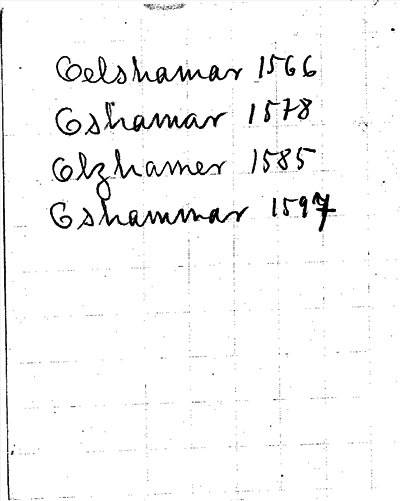 Oelshamar 1566
Oshamar 1578
Olzhamer 1585
Oshammar 1597